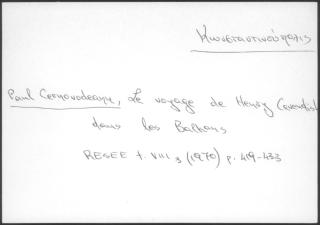 Κωνσταντινούπολις
Paul Cernovodeanu, Le voyage de Henry Cavendish
dans les Balkans
RESEE t. VIII 3 (1970) p. 419-433